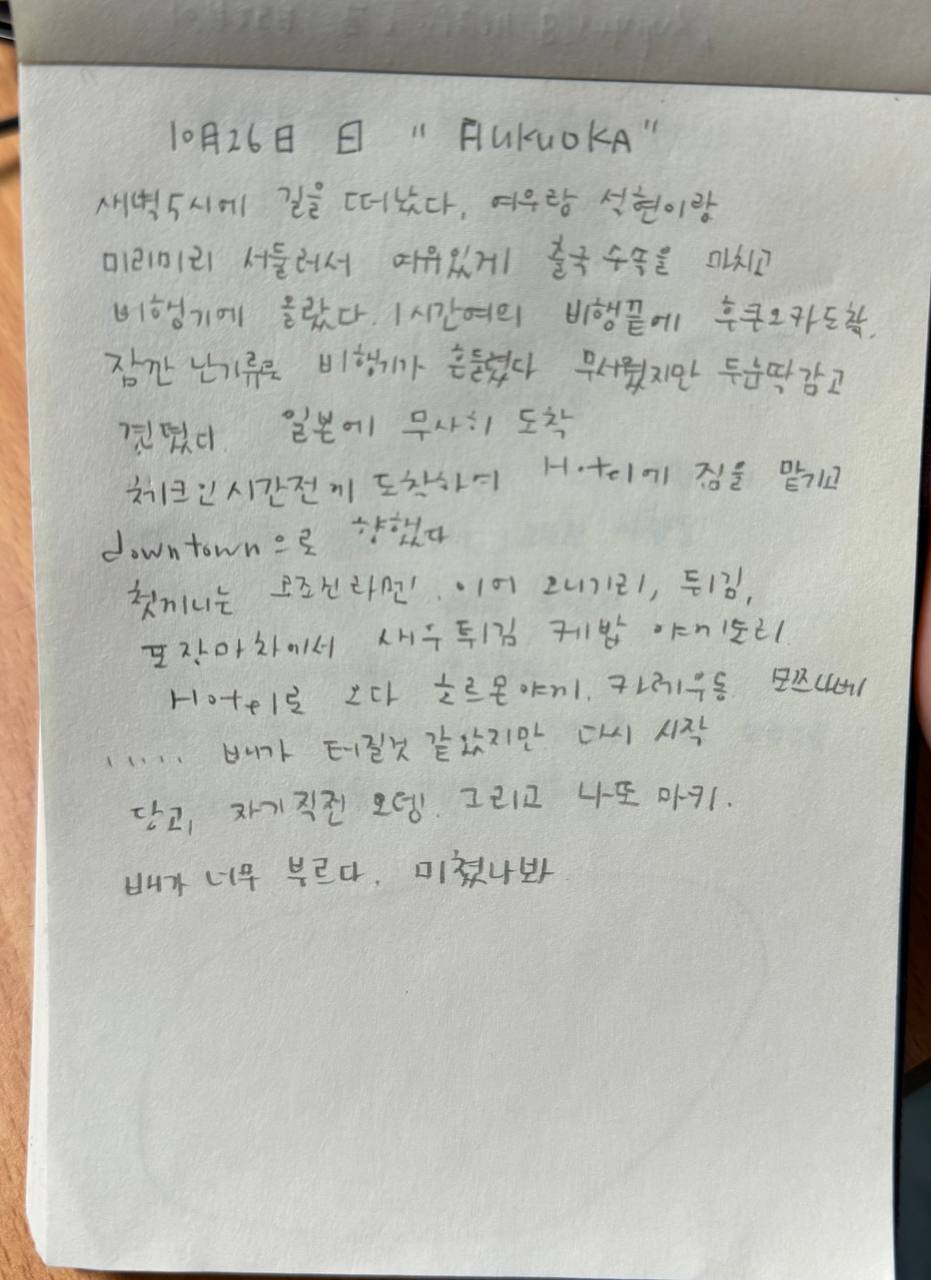 10月26日 日 " FUKUOKA"
새벽 5시에 길을 떠났다. 여우랑 석현이랑
미리미리 서둘러서 여유있게 출국 수속을 마치고
비행기에 올랐다. 1시간여의 비행끝에 후쿠오카도착.
잠깐 난기류로 비행기가 흔들렸다 무서웠지만 두눈딱감고
견뎠다. 일본에 무사히 도착
체크인시간전에 도착하여 Hotel에 짐을 맡기고
downtown으로 향했다
첫끼니는 라면. 이어 오니기리, 튀김,
포장마차에서 새우튀김 야끼도리
Hotel로 오다 호르몬야끼. 카레우동 모쯔나베
..... 배가 터질것 같았지만 다시 시작
당고, 자기직전 오뎅. 그리고 나또 마키.
배가 너무 부르다. 미쳤나봐